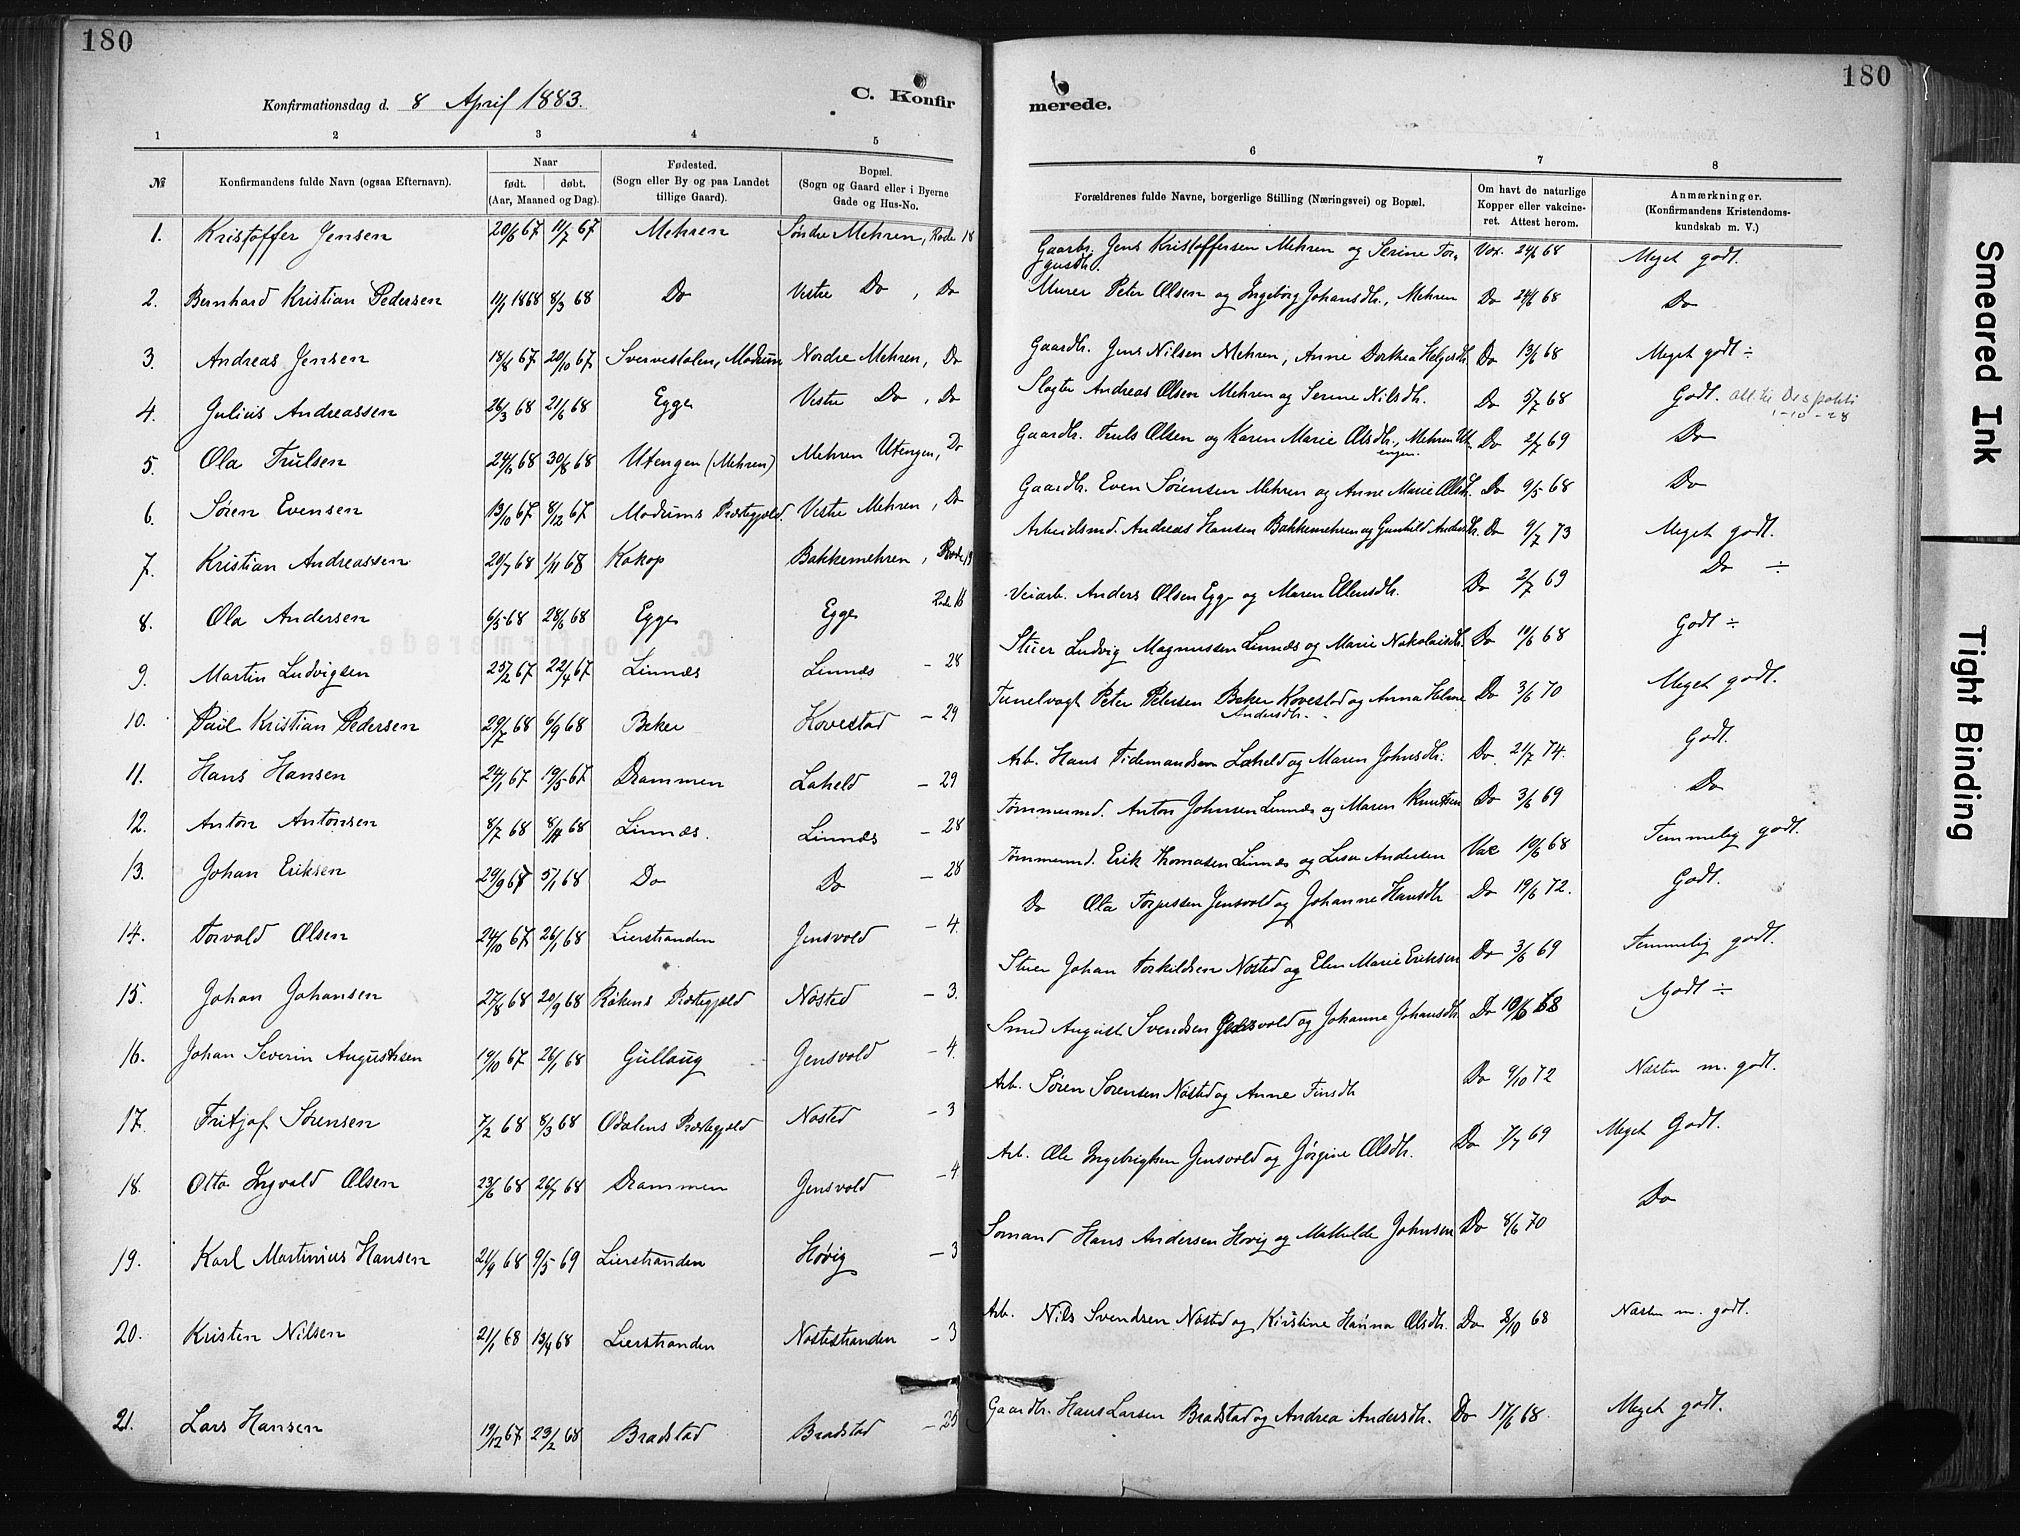 180
Konfirmationsdag d. 8 April 1883.
C. Konfir
1 2 3 4 5
№ Konfirmandens fulde Navn (ogsaa Efternavn). Naar født. døbt. (Aar, Maaned og Dag). Fødested. (Sogn eller By og paa Landet tillige Gaard). Bopæl. (Sogn og Gaard eller i Byerne Gade og Hus-No.
1. Kristoffer Jensen 20/6 67 11/7 67 Mehren Søndre Mehren, Rode 18
2. Bernhard Kristian Pedersen 11/1 1868 8/3 68 Do Vestre Do, Do
3. Andreas Jensen 18/8 67 20/10 67 Svervestolen, Modum Nordre Mehren, Do
4. Julius Andreassen 26/3 68 21/6 68 Egge Vestre Do, Do
5. Ola Trulsen 24/6 68 30/8 68 Utengen (Mehren) Mehren Utengen, Do
6. Søren Evensen 13/10 67 8/12 67 Modums Præstegjeld. Vestre Mehren, Do
7. Kristian Andreassen 20/7 68 1/11 68 Kokop Bakkemehren, Rode 19
8. Ola Andersen 6/5 68 28/6 68 Egge Egge Rode 16
9. Martin Ludvigsen 25/2 67 22/4 67 Linnæs Linnæs – 28
10. Paul Kristian Pedersen 29/7 68 6/9 68 Beker Kovestad – 29
11. Hans Hansen 24/1 67 19/5 67 Drammen Laheld – 29
12. Anton Antonsen 8/7 68 8/11 68 Linnæs. Linnæs – 28
13. Johan Eriksen 29/9 67 5/1 68 Do Do – 28
14. Torvald Olsen 24/10 67 26/1 68 Lierstranden Gensvold – 4.
15. Johan Johansen 27/8 68 20/9 68 Røkens Præstegjeld Nøsted – 3.
16. Johan Severin Augustsen 19/10 67 26/1 68 Gullaug Gensvold – 4.
17. Fritjof Sørensen 7/2 68 8/3 68 Odalens Præstegjeld Nøsted – 3
18. Otto Ingvald Olsen 23/6 68 26/7 68 Drammen Gensvold – 4
19. Karl Martinius Hansen 21/9 68 9/5 69 Lierstranden Høvig – 3
20. Kristen Nilsen 21/1 68 13/4 68 Lierstranden Nøstestranden – 3
21. Lars Hansen 19/12 67 23/2 68 Bradstad Bradstad – 25
180
merede.
6 7 8
Forældrenes fulde Navne, borgerlige Stilling (Næringsvei) og Bopæl. Om havt de naturlige Kopper eller vakcineret. Attest herom. Anmærkninger. (Konfirmandens Kristendomskundskab m. V.)
Gaardbr. Jens Kristoffersen Mehren og Serine Torgusdtr. Vax. 24/6 68 Meget godt.
Murer Peter Olsen og Ingeborg Johansdtr., Mehren Do 24/6 68 Do
Gaardbr. Jens Nilsen Mehren, Anne Dorthea Helgesdtr Do 13/6 68 Meget godt ÷
Slagter Andreas Olsen Mehren og Serine Nilsdtr. Do 5/7 68 Godt. att. til Ds politi
1-10-28
Gaardbr. Truls Olsen og Karen Marie Olsdtr., Mehren Utengen. Do 2/7 69 Do
Gaardbr. Even Sørensen Mehren og Anne Marie Olsdtr. Do 9/5 68 Do
Arbeidsmd. Andreas Hansen Bakkemehren og Gunhild Andersdtr. Do 9/7 73 Meget godt.
Veiarb. Anders Olsen Egge og Maren Ellensdtr. Do 2/7 69 Do ÷
Stuer Ludvig Magnussen Linnæs og Marie Nikolaisdtr. Do 10/6 68 Godt ÷
Tunelvagt Peter Petersen Beker Kovestad og Anna Helene Andersdtr. Do 3/6 70 Meget godt.
Arb. Hans Tidemandsen Laheld og Maren Johnsdtr. Do. 21/7 74. Godt.
Tømmermd. Anton Johnsen Linnæs og Maren Knutsen Do 3/6 69 Do
Tømmermd. Erik Thomasen Linnæs og Lisa Andersen Vac 10/6 68 Temmelig godt.
Do Ola Torjussen Jensvold og Johanne Hansdtr Do 19/6 72. Godt.
Stuer Johan Torkildsen Nøsted og Elen Marie Eriksen Do 3/6 69 Temmelig godt.
Smed August Svendsen Gensvold og Johanne Johansdtr. Do 10/6 68 Godt ÷
Arb. Søren Sørensen Nøsted og Anne Finsdtr Do 9/10 72 Næsten m. godt.
Arb. Ole Ingebrigtsen Jensvold og Jørgine Olsdtr. Do 7/7 69 Meget Godt.
Sømand Hans Andersen Høvig og Mathilde Johnsen Do 8/6 70 Do
Arb. Nils Svendsen Nøsted og Kirstine Hanna Olsdtr. Do 8/10 68 Næsten m. godt.
Gaardbr. Hans Larsen Bradstad og Andrea Andersdtr. Do 17/6 68. Meget godt.
Smeared Ink
Tight Binding